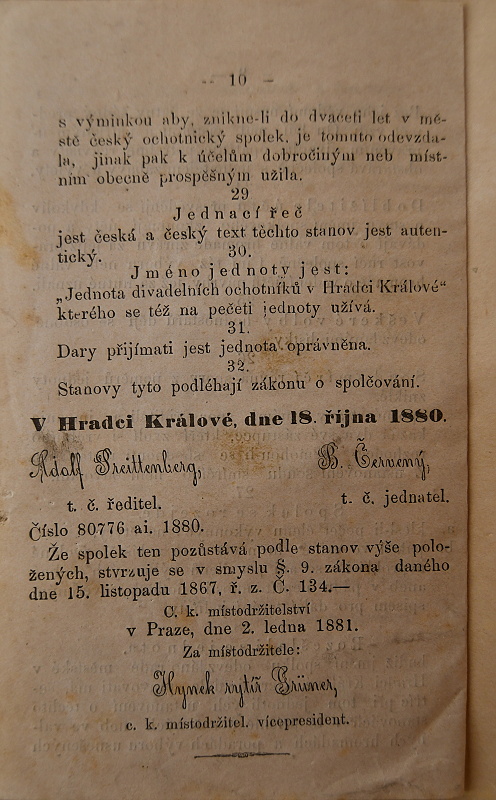 — 10 —
s výminkou aby, znikne-li do dvaceti let v mě-
stě český ochotnický spolek, je tomuto odevzda-
la, jinak pak k účelům dobročiným neb míst-
ním obecně prospěšným užila.
29
Jednací řeč
jest česká a český text těchto stanov jest auten-
tický.
30.
Jméno jednoty jest:
„Jednota divadelních ochotníků v Hradci Králové“
kterého se též na pečeti jednoty užívá.
31.
Dary přijímati jest jednota oprávněna.
32.
Stanovy tyto podléhají zákonu o spolčování.
V Hradci Králové, dne 18. října 1880.
Adolf Freittenberg, B. Červený,
t. č. ředitel. t. č. jednatel.
Číslo 80776 ai. 1880.
Že spolek ten pozůstává podle stanov výše polo-
žených, stvrzuje se v smyslu §. 9. zákona daného
dne 15. listopadu 1867, ř. z. Č. 134.—
C. k. místodržitelství
v Praze, dne 2. ledna 1881.
Za místodržitele:
Hynek rytíř Grüner,
c. k. místodržitel. vícepresident.